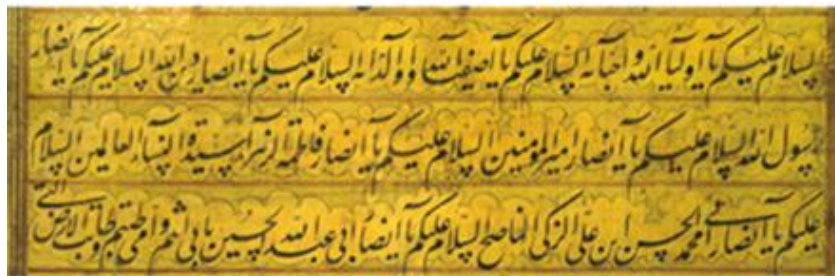 السلام علیکم یا اولیآ الله و احبآئه السلام علیکم یا اصفیآ الله و اودآئه السلام علیکم یا انصار دین الله السلام علیکم یا انصار
رسول الله السلام علیکم یا انصار امیرالمؤمنین السلام علیکم یا انصار فاطمة الزهرآ سیدة النسآء العالمین السلام
علیکم یا انصار ابی محمد الحسن ابن علی الزکی الناصح السلام علیکم یا انصار ابی عبدالله الحسین بابی انتم و امی طبتم و طابت الارض التی